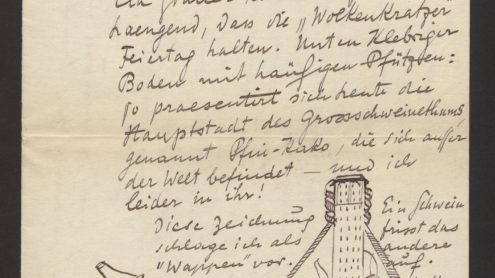 haengend, dass die "Wolkenkratzer"
Feiertag halten. Unten Klebriger
Boden mit häufigen Pfützen:
so praesentirt sich heute die
Hauptstadt des Grossschweinethums,
genannt Pfui-Kako, die sich ausser
der Welt befindet — und ich
leider in ihr!
Diese Zeichnung
schlage ich als
"Wappen" vor.
Ein Schwein
frisst das
andere
auf.